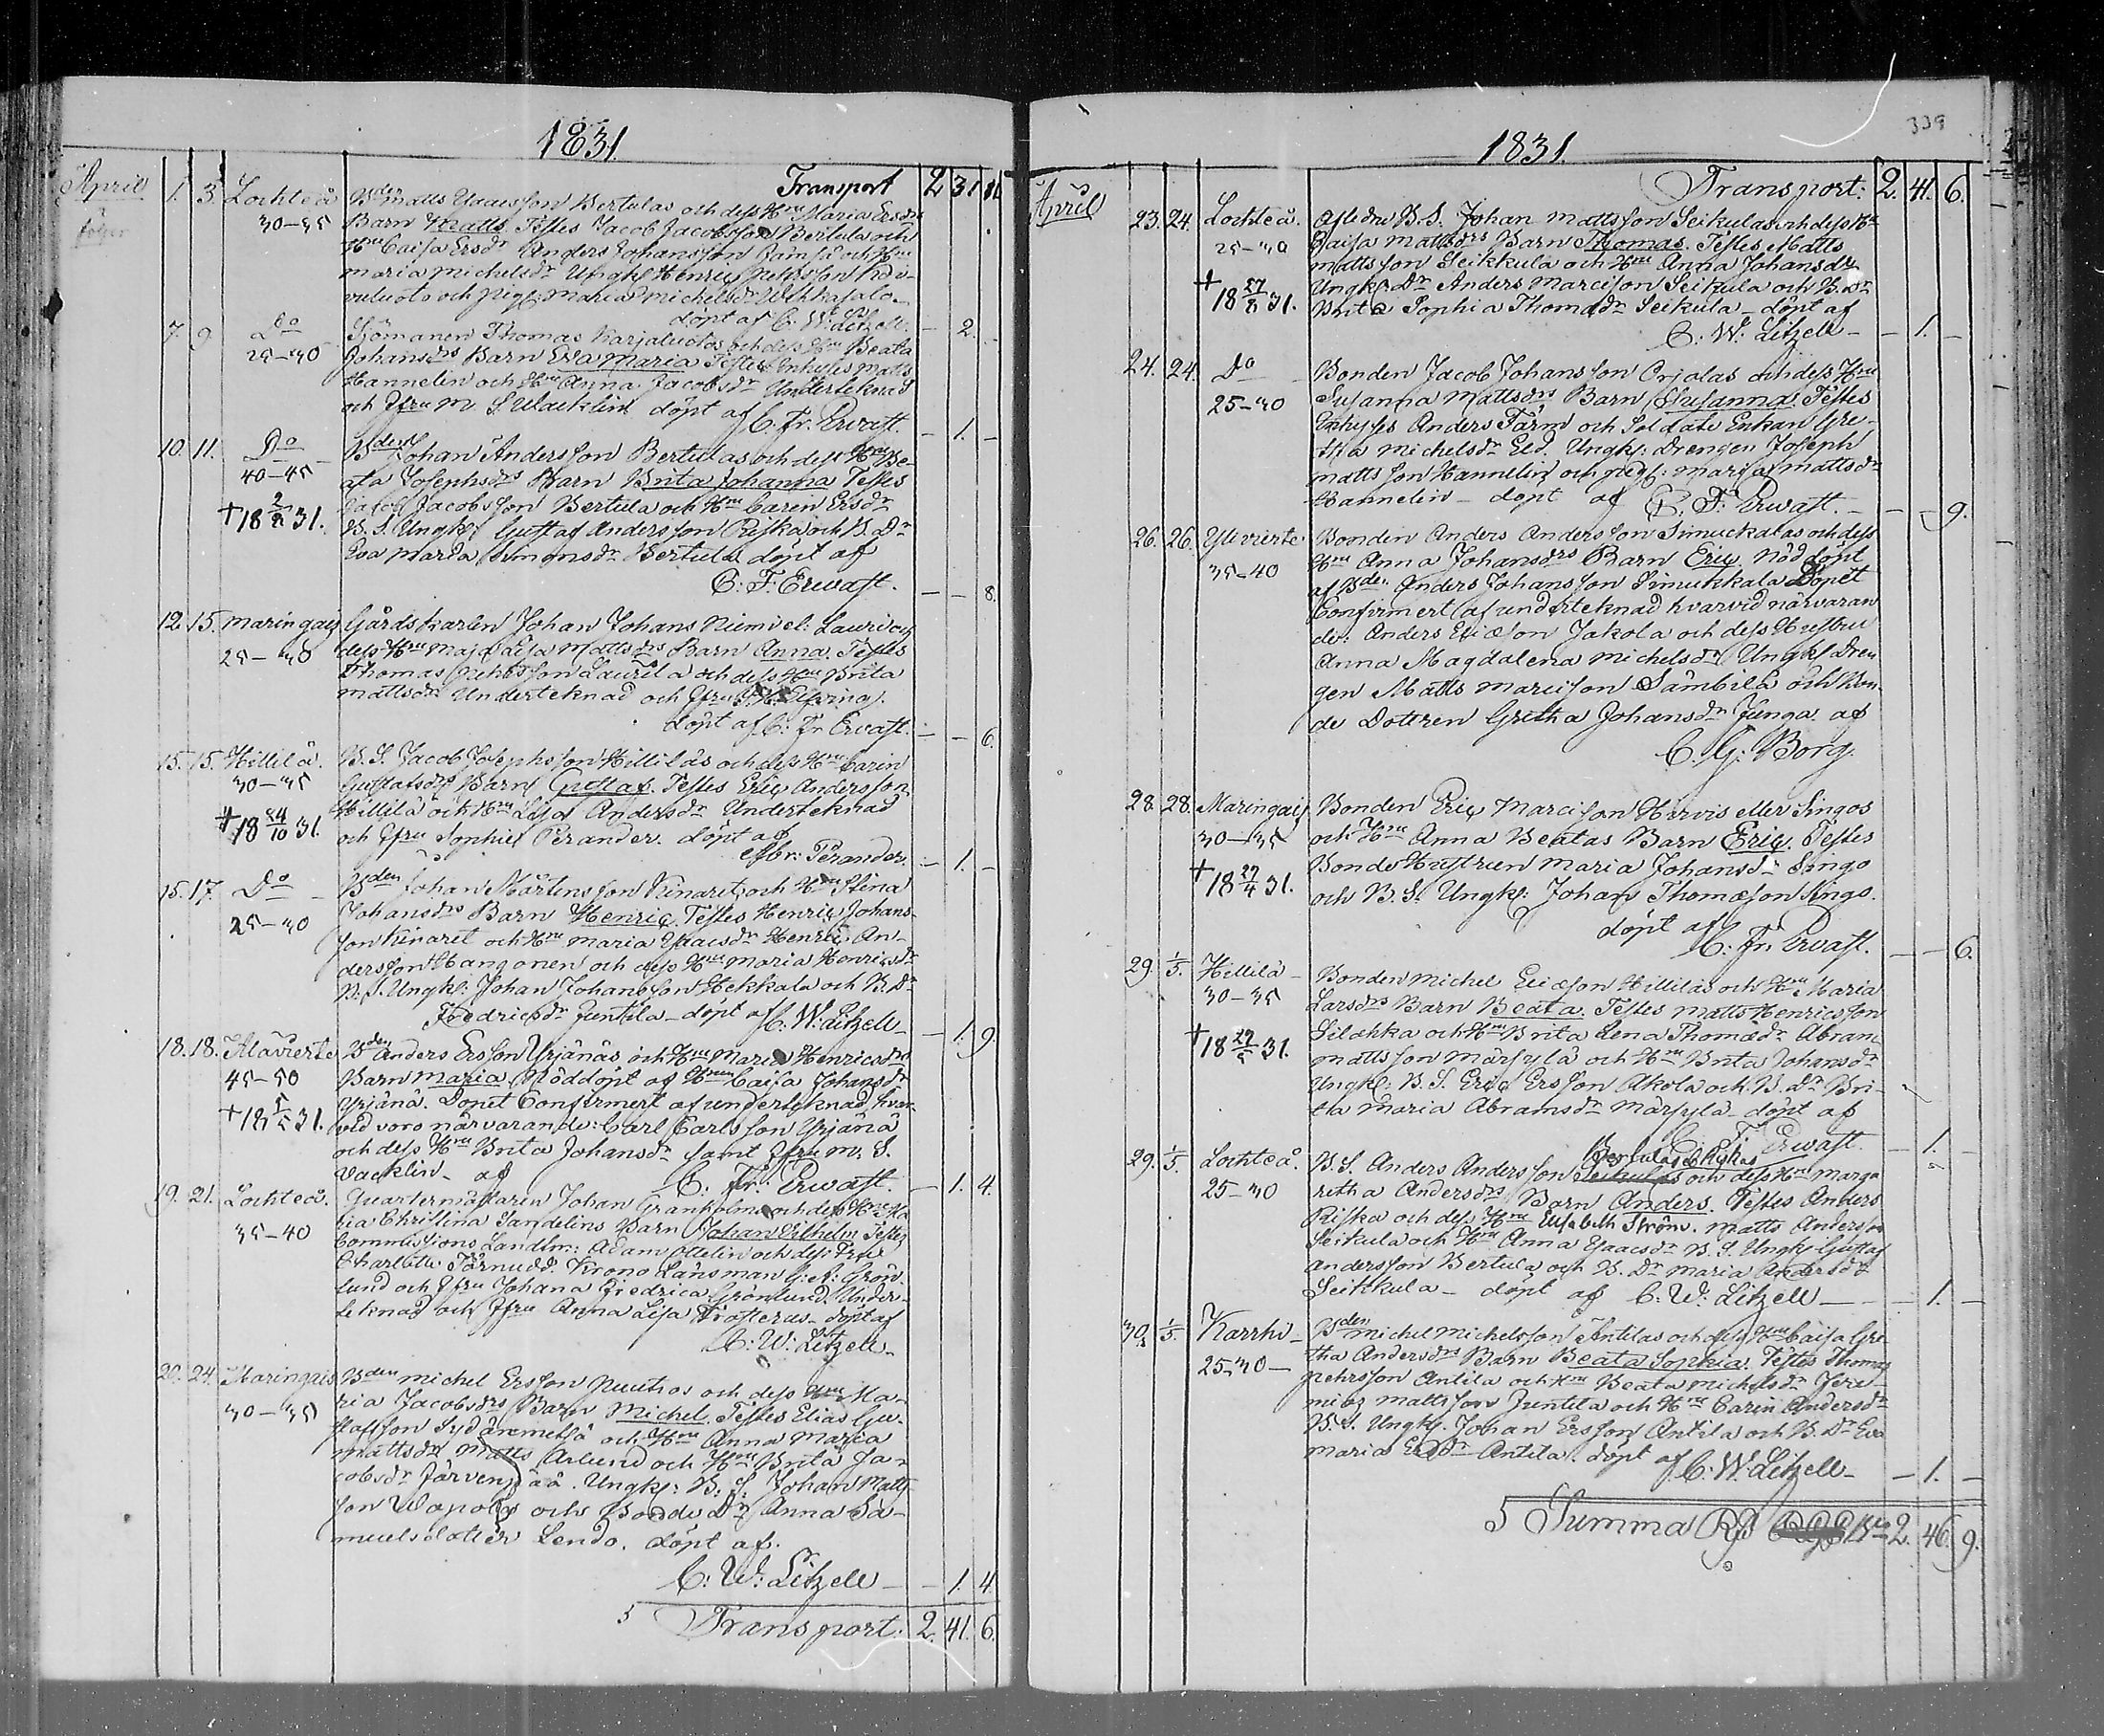 1831.
April
Transport 2 31 11
1. 3. Lochteå Bden Matts Isaacsson Bertulas och dess Hru Maria Ersdrs
30-35 Barn Matts. Testes Jacob Jacobsson Bertula och
Hru Caisa Ersdr Anders Johansson Jämsä och Hru
Maria Michelsdr Ungk. Henric
och Pig. Maria Michelsdr
döpt af C. W. Litzell. - 2. -
7. 9. Do Sjömannen Thomas Karjaluotos och dess Hru Beata
25-30 Johansdrs Barn Eva Maria Testes Inhyses Matts
Hannelin och Hru Anna Jacobsdr Undertecknad
och Jfru M. S. Wacklin döpt af C. Fr. Ervast. - 1. -
10. 11. Do Bden Johan Andersson Bertulas och dess Hru Be-
40-45 ata Josephsdrs Barn Brita Johanna Testes
Jacob Jacobsson Bertula och Hru Caren Ersdr
†18 2/8 31. B. S. Ungk. Gustaf Andersson Riska och B. Dr
Eva Maria Simonsdr Bertula döpt af
C. F. Ervast. - - 8.
12. 15. Maringais Gårdskarlen Johan Johans Niemi el. Lauri och
25-30 dess Hru Maja Lisa Mattsdrs Barn Anna. Testes
Thomas Laurila och dess Hru Brita
Mattsdr Undertecknad och Jfru Elfving.
döpt af C. Fr. Ervast. - - 6.
15. 15. Hillilä. B. S. Jacob Josephsson Hilliläs och dess Hru Carin
30-35 Gustafsdrs Barn Gustaf. Testes Eric Andersson
Hillilä och Hru Lisa Andersdr Undertecknad
†18 24/10 31. och Jfru Sophie Perander. döpt af
Abr: Perander. - 1. -
15. 17. Do Bden Johan Mårtensson Kinarets och Hru Stina
25-30 Johansdrs Barn Henric. Testes Henric Johans-
son Kinaret och Hru Maria Isaacsdr Henric An-
dersson Hanganen och dess Hru Maria Henricsdr
B. S. Ungk: Johan Johansson Hekkala och B. Dr
Fredricsdr Juntila döpt af C. W. Litzell - 1. 9.
18. 18. Alavierte Bden Anders Ersson Yrjänäs och Hru Maria Henricsdrs
45-50 Barn Maria Nöddöpt af Hrun Caisa Johansdr
†18 5/5 31. Yrjänä. Dopet Confirmert af undertecknad hvar-
vid voro närvarande: Carl Carlsson Yrjänä
och dess Hru Brita Johansdr samt Jfru M. S.
Wacklin af C. Fr. Ervast. - 1. 4.
19. 21. Lochteå. Quartermästaren Johan Granholms och dess Hrus Ma-
35-40 ria Christina Sandelins Barn Johan Vilhelm Testes
Commissions Landtm: Adam Ottelin och dess Fru
Charlotte Törnudd. Krono Länsman G: A: Grön-
lund och Jfru Johana Fredrica Grönlund. Under-
tecknad och Jfru Anna Lisa döpt af
C. W. Litzell
20. 24. Maringais Bden Michel Ersson och dess Hru Ma-
30-35 ria Jacobsdrs Barn Michel. Testes Elias Gu-
stafsson Sydänmetsä och Hru Anna Maria
Mattsdr Matts Arlund och Hru Brita Ja-
cobsdr Järvenpää. Ungk: B. S. Johan Matts-
son och Bonde Dr Anna Sa-
muels dotter Lendo. döpt af.
C. W. Litzell - 1. 4.
Transport: 2. 41. 6.
339
1831
April
Transport: 2. 41. 6.
23. 24. Lochteå. B. S. Johan Mattsson Seikulas och dess Hru
25-30 Caisa Mattsdrs Barn Thomas. Testes Matts
Mattsson Seikkula och Hru Anna Johansdr
†18 27/8 31. Ungk: Dr Anders Marcisson Seikula och B. Dr
Brita Sophia Thomsdr Seikula döpt af
C. W. Litzell - 1. -
24. 24. Do Bonden Jacob Johansson Orjalas och dess Hru
25-30 Susanna Mattsdrs Barn Susanna Testes
Inhyses Anders Färm och Soldats Enkan Gre-
tha Michelsdr Eld. Ungk: drengen Joseph
Mattsson Hannelin och pig: Maria Mattsdr
Hannelin döpt af C. F. Ervast. - - 9.
26. 26. Ylivierte Bonden Anders Andersson Simuckalas och dess
35-40 Hru Anna Johansdrs Barn Eric Nöd döpt
af Bden Anders Johansson Simukkala Dopet
Confirmert af undertecknad hvarvid närvaran
de: Anders Ericson Jakola och dess Hustru
Anna Magdalena Michelsdr Ungk dren
gen Matts Marcison Sämbilä och Bon-
de Dottren Gretha Johansdr Junga af
C. G. Borg.
28. 28. Maringais Bonden Eric Marcison Hirvis eller Singos
30-35 och Hru Anna Beatas Barn Eric. Testes
Bonde Hustrun Maria Johansdr Singo
†18 29/4 31. och B. S. Ungk: Johan Thomason Singo.
döpt af C. Fr. Ervast. - - 6.
29. 1/5. Hillilä Bonden Michel Ericson Hilliläs och Hru Maria
30-35 Larsdrs Barn Beata. Testes Matts Henricsson
Silahka och Hru Brita Lena Thomædr Abram
†18 29/5 31. Mattsson Märsylä och Hru Brita Johansdr
Ungk: B. S. Eric Ersson Akola och B. Dr Bri-
tta Maria Abramsdr Märsylä döpt af
C. F. Ervast. - 1. -
29. 1/5. Lochteå. B. S. Anders Andersson Bertulas och dess Hru Marga-
25-30 retha Andersdrs Barn Anders. Testes Anders
Riska och dess Hru Elisabeth Ström. Matts Andersson
Seikula och Hru Anna Isaacsdr B. S. Ungk: Gustaf
Andersson Bertula och B. Dr Maria Andersdr
Seikkula döpt af C. W. Litzell - 1. -
30. 1/5. Karrhi Bden Michel Michelsson Antilas och dess Hru Caisa Gre-
25-30 tha Andersdrs Barn Beata Sophia. Testes Thomas
Pehrsson Antila och Hru Beata Michelsdr Jere-
mias Mattsson Juntila och Hru Carin Andersdr
B. S. Ungk. Johan Ersson Antila och B. Dr Eva
Maria Ersdr Antila. döpt af C. W. Litzell - 1. -
Summa 2. 46. 9.